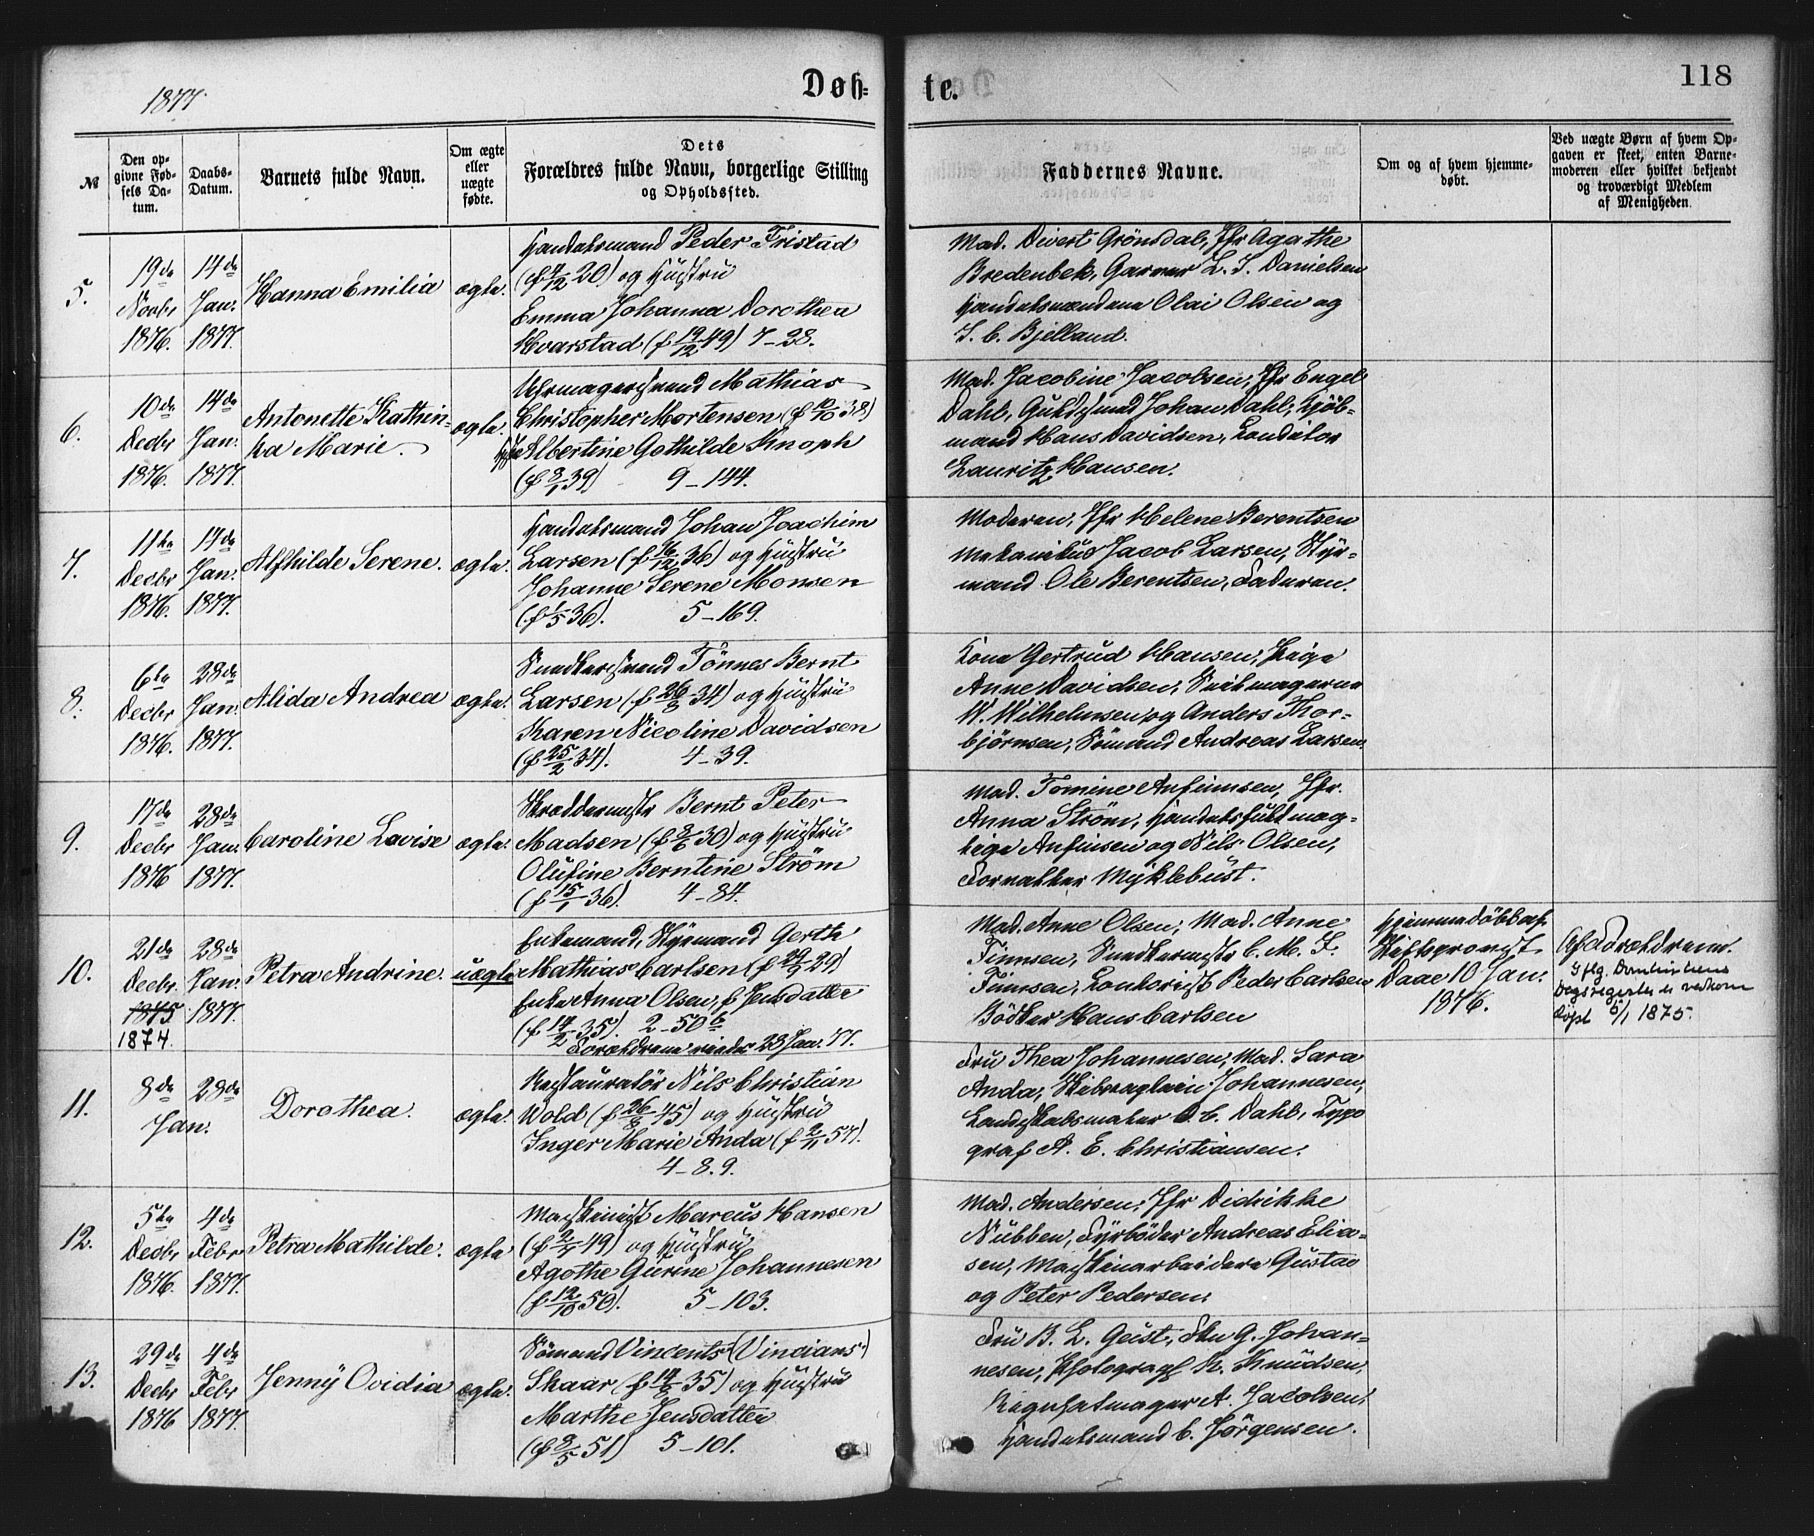 1877.
Døb-
te.
118
№
Den op-
givne Fød-
sels Da-
tum.
Daabs-
Datum.
Barnets fulde Navn.
Om ægte
eller
uægte
fødte.
Dets
Forældres fulde Navn, borgerlige Stilling
og Opholdssted.
Faddernes Navne.
Om og af hvem hjemme-
døbt.
Ved uægte Børn af hvem Op-
gaven er skeet, enten Barne-
moderen eller hvilket bekjendt
og troværdigt Medlem
af Menigheden.
5.
19de
Novbr
1876.
14de
Jan.
1877.
Hanna Emilia
ægte.
Handelsmand Peder Tristad
(f 20) og Hustru
Emma Johanna Dorothea
Hvarstad (f 19/12 49) 7-28.
Mad. Divert Grönsdal, Jfr Agathe
Bredenbek, Garver L. S. Danielsen
Handelsmændene Olai Olsen og
S. C. Bjelland.
6.
10de
Decbr
1876.
14de
Jan.
1877.
Antonette Kathin-
ka Marie.
ægte.
Uhrmagersvend Mathias
Christopher Mortensen (f 38)
Albertine Gothilde Knoph
(f 3/1 39) 9-144.
Mad. Jacobine Jacobsen, Jfr Engel
Dahl, Guldsmed Johan Dahl, Kjöb-
mand Hans Davidsen, Konditor
Lauritz Hansen.
7.
11te
Decbr
1876.
14de
Jan.
1877.
Alfhilde Serene.
ægte.
Handelsmand Johan Joachim
Larsen (f 16/12 36) og Hustru
Johanne Serene Monsen
(f 1/5 36). 5-169.
Moderen, Jfr Helene Berentsen
Mekanikus Jacob Larsen, Styr-
mand Ole Berentsen, Faderen.
8.
6te
Decbr
1876.
28de
Jan.
1877.
Alida Andrea
ægte.
Snedkersvend Tönnes Bernt
Larsen (f 26/8 34) og Hustru
Karen Nicoline Davidsen
(f 25/2 34). 4-39.
Kone Gertrud Hansen, Pige
Anne Davidsen, Seilmagerne
W. Wilhelmsen og Anders Thor-
björnsen, Sömand Andreas Larsen.
9.
17de
Decbr
1876
28de
Jan.
1877.
Caroline Lovise
ægte.
Skræddermester Bernt Peter
Madsen (f 30) og Hustru
Olufine Berntine Ström
(f 15/1 36). 4-84.
Mad. Tomine Anfinnsen, Jfr.
Anna Ström, Handelsfuldmæg-
tige Anfinsen og Nils Olsen,
Forvalter Myklebust.
10.
21de
Decbr.
1875
1874.
28de
Jan.
1877.
Petra Andrine.
uægte
Enkemand, Styrmand Gerth
Mathias Carlsen (f 29)
Enke Anna Olsen, f Jensdatter
(f 14/2 35). 2-50 b
Forældrene viede 23 Jan. 77.
Mad. Anne Olsen, Mad. Anne
Finnsen, Snedkermester C. M. F.
Finnsen, Kontorist Peder Carlsen
Bödker Hans Carlsen
Hjemmedöbt af
Stiftsprovst
Daae 10 Jan.
1876.
Af Forældrene.
Iflg. Domkirkens
Dagsregister er vedkom
döpt 6/1 1875.
11.
8de
Jan.
28de
Dorothea.
ægte.
Restauratör Nils Christian
Wold (f 26/8 45) og Hustru
Inger Marie Anda (f 2/11 57).
4-8.9.
Fru Thea Johannesen, Mad. Sara
Anda, Skibsreglerer Johannesen,
Landskabsmaler C. Dahl, Typo
graf A. E. Christiansen.
12.
5te
Decbr
1876.
4de
Febr
1877.
Petra Mathilde.
ægte
Maskinist Marcus Hansen
(f 49) og Hustru
Agothe Gurine Johannesen
(f 12/10 50). 5-103.
Mad. Andersen, Jfr Didrikke
Nübben, Fyrböder Andreas Elia-
sen, Maskinarbeidere Gustav
og Peter Pedersen.
13.
29de
Decbr
1876
4de
Febr
1877.
Jenny Ovidia
ægte.
Sömand Vincents (Vincians)
Skaar (f 35) og Hustru
Marthe Jensdatter
(f 3/5 51) 5-101.
Fru B. L. Geist, Frk G. Johan-
nesen, Photograf K. Knudsen,
A. Jacobsen,
Handelsmand C. Jörgensen.